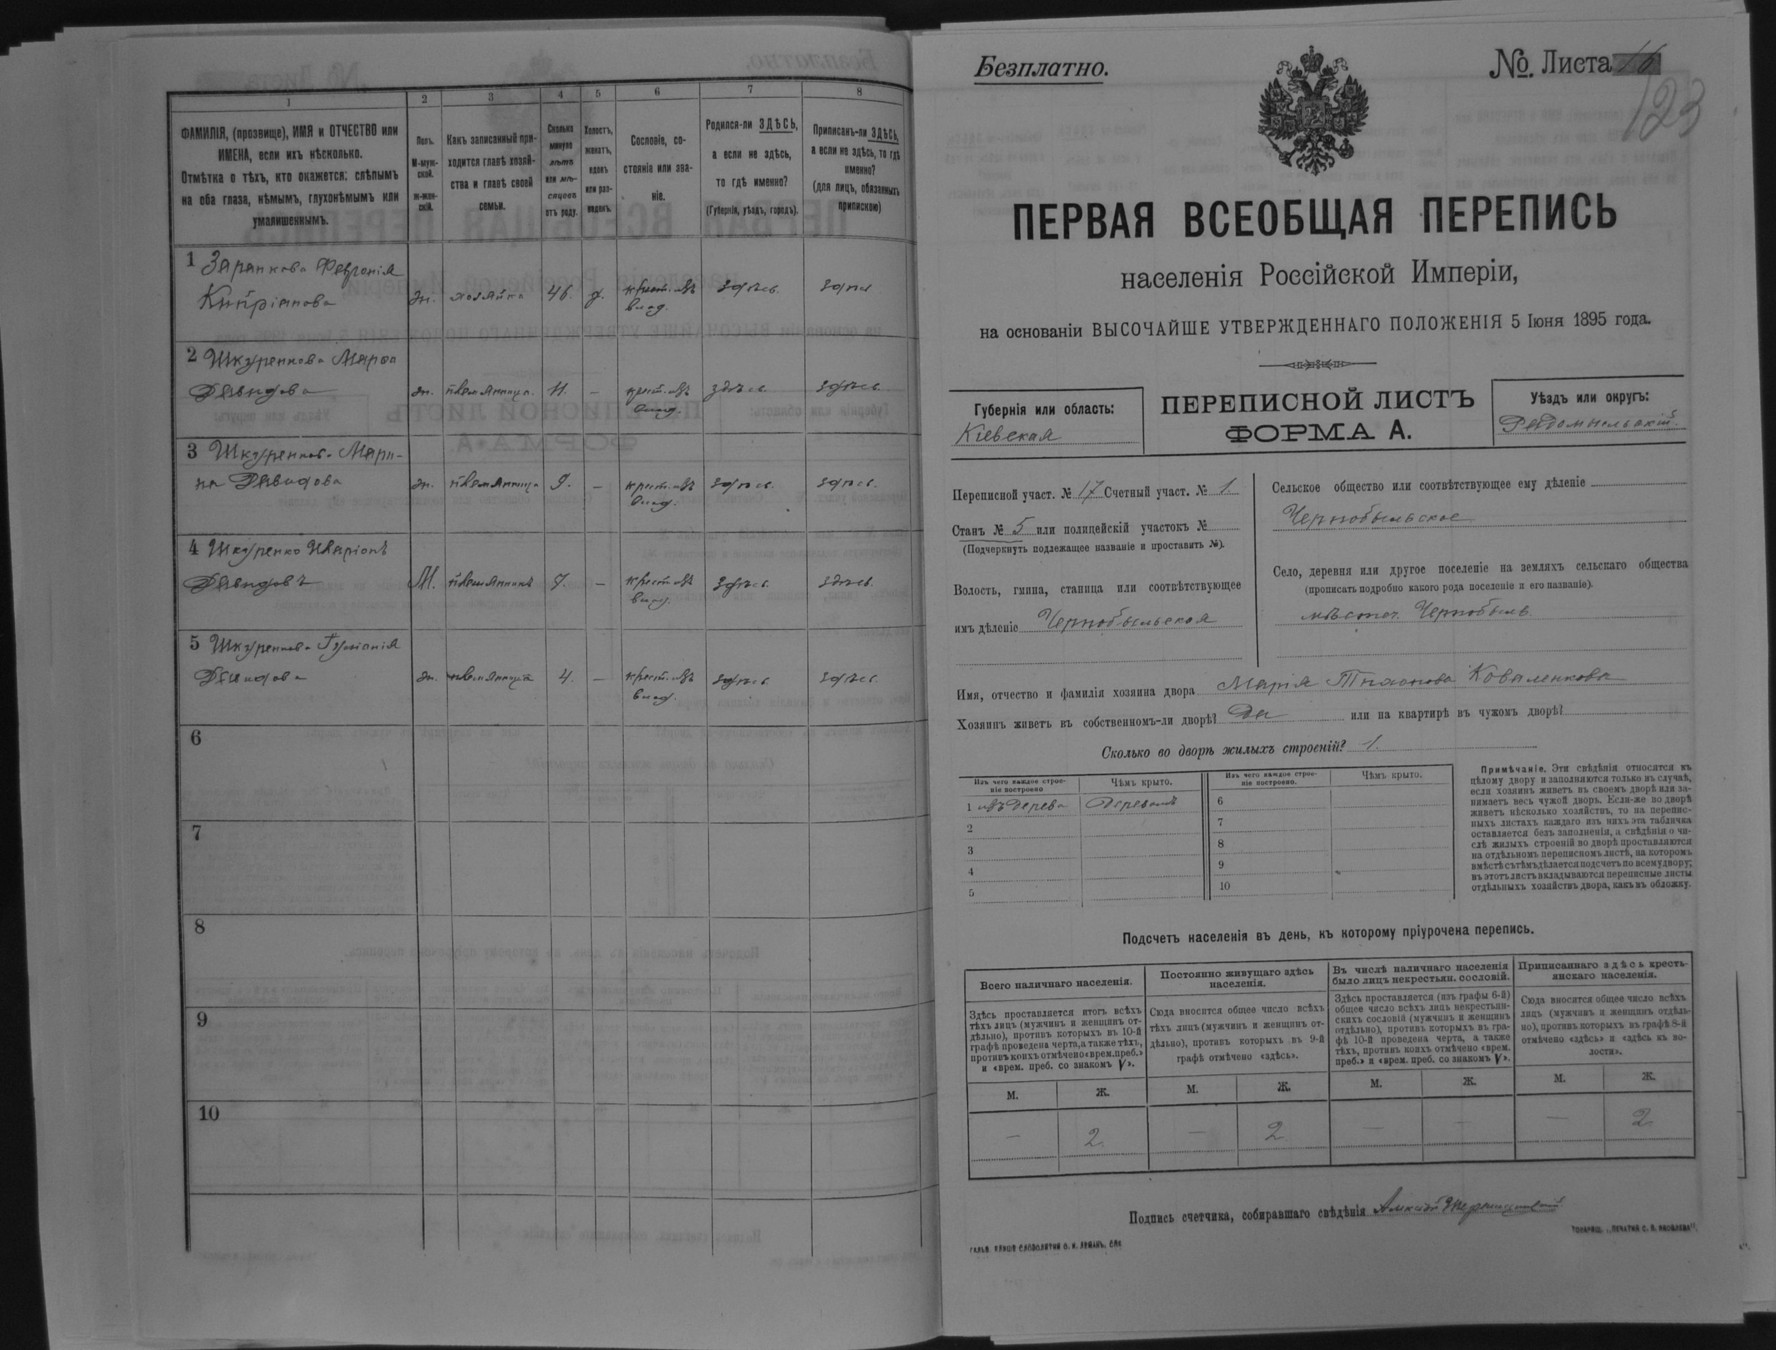 1
2
3
4
5
6
7
8
ФАМИЛІЯ, (прозвище), ИМЯ и ОТЧЕСТВО или
ИМЕНА, если ихъ нѣсколько.
Отмѣтка о тѣхъ, кто окажется: слѣпымъ
на оба глаза, нѣмымъ, глухонѣмымъ или
умалишеннымъ.
Полъ.
М-муж-
ской.
ж-жен-
скій.
Какъ записанный при-
ходится главѣ хозяй-
ства и главѣ своей
семьи.
Сколько
минуло
лѣтъ
или мѣ-
сяцевъ
отъ роду.
Холостъ,
женатъ,
вдовъ
или раз-
веденъ.
Сословіе, со-
стояніе или зва-
ніе.
Родился-ли ЗДѢСЬ,
а если не здѣсь,
то гдѣ именно?
(Губернія, уѣздъ, городъ).
Приписанъ-ли ЗДѢСЬ,
а если не здѣсь, то гдѣ
именно?
(для лицъ, обязанныхъ
припискою)
1
Февронія
Кипріянова
ж. хозяйка 46. в. крест. изъ влад. здѣсь. здѣсь
2 Шкуренкова
Давидова
ж. 11. – крест. изъ влад. здѣсь здѣсь.
3 Шкуренкова Мари-
на Давидова
ж. племянница 9. – крест. изъ влад. здѣсь. здѣсь.
4 Шкуренко Иларіонъ
Давидовъ
М. племянникъ 7. – крест. изъ влад. здѣсь. здѣсь.
5 Шкуренкова
Давидова
ж. племянница 4. – крест. изъ влад. здѣсь. здѣсь.
6
7
8
9
10
Безплатно.
№. Листа 16
123
ПЕРВАЯ ВСЕОБЩАЯ ПЕРЕПИСЬ
населенія Россійской Имперіи,
на основаніи ВЫСОЧАЙШЕ УТВЕРЖДЕННАГО ПОЛОЖЕНІЯ 5 Іюня 1895 года.
Губернія или область:
Кіевская
ПЕРЕПИСНОЙ ЛИСТЪ
ФОРМА А.
Уѣздъ или округъ:
Радомысльскій.
Переписной участ. № 17 Счетный участ. № 1.
Станъ № 5 или полицейскій участокъ №
(Подчеркнуть подлежащее названіе и проставить №).
Волость, гмина, станица или соотвѣтствующее
имъ дѣленіе Чернобыльская
Сельское общество или соотвѣтствующее ему дѣленіе
Чернобыльское
Село, деревня или другое поселеніе на земляхъ сельскаго общества
(прописать подробно какого рода поселеніе и его названіе).
мѣстеч. Чернобыль.
Имя, отчество и фамилія хозяина двора Марія Коваленкова
Хозяинъ живетъ въ собственномъ-ли дворѣ? Да или на квартирѣ въ чужомъ дворѣ?
Сколько во дворѣ жилыхъ строеній? 1.
Изъ чего каждое строе-
ніе построено
Чѣмъ крыто.
Изъ чего каждое строе-
ніе построено.
Чѣмъ крыто.
1 изъ дерева Деревомъ
2
3
4
5
6
7
8
9
10
Примѣчаніе. Эти свѣдѣнія относятся къ
цѣлому двору и заполняются только въ случаѣ,
если хозяинъ живетъ въ своемъ дворѣ или за-
нимаетъ весь чужой дворъ. Если-же во дворѣ
живетъ нѣсколько хозяйствъ, то на перепис-
ныхъ листахъ каждаго изъ нихъ эта табличка
оставляется безъ заполненія, а свѣдѣнія о чи-
слѣ жилыхъ строеній во дворѣ проставляются
на отдѣльномъ переписномъ листѣ, на которомъ
вмѣстѣ съ тѣмъ дѣлается подсчетъ по всему двору;
въ этотъ листъ вкладываются переписные листы
отдѣльныхъ хозяйствъ двора, какъ въ обложку.
Подсчетъ населенія въ день, къ которому пріурочена перепись.
Всего наличнаго населенія.
Здѣсь проставляется итогъ всѣхъ
тѣхъ лицъ (мужчинъ и женщинъ от-
дѣльно), противъ которыхъ въ 10-й
графѣ проведена черта, а также тѣхъ,
противъ коихъ отмѣчено «врем. преб.»
и «врем. преб. со знакомъ V».
Постоянно живущаго здѣсь
населенія.
Сюда вносится общее число всѣхъ
тѣхъ лицъ (мужчинъ и женщинъ от-
дѣльно), противъ которыхъ въ 9-й
графѣ отмѣчено «здѣсь».
Въ числѣ наличнаго населенія
было лицъ некрестьян. сословій.
Здѣсь проставляется (изъ графы 6-й)
общее число всѣхъ лицъ некрестьян-
скихъ сословій (мужчинъ и женщинъ
отдѣльно), противъ которыхъ въ гра-
фѣ 10-й проведена черта, а также
тѣхъ, противъ коихъ отмѣчено «врем.
преб.» и «врем. преб. со знакомъ V».
Приписаннаго здѣсь кресть-
янскаго населенія.
Сюда вносится общее число всѣхъ
лицъ (мужчинъ и женщинъ отдѣль-
но), противъ которыхъ въ графѣ 8-й
отмѣчено «здѣсь» и «здѣсь въ во-
лости».
М. Ж. М. Ж. М. Ж. М. Ж.
– 2 – 2 – – – 2
Подпись счетчика, собиравшаго свѣдѣнія